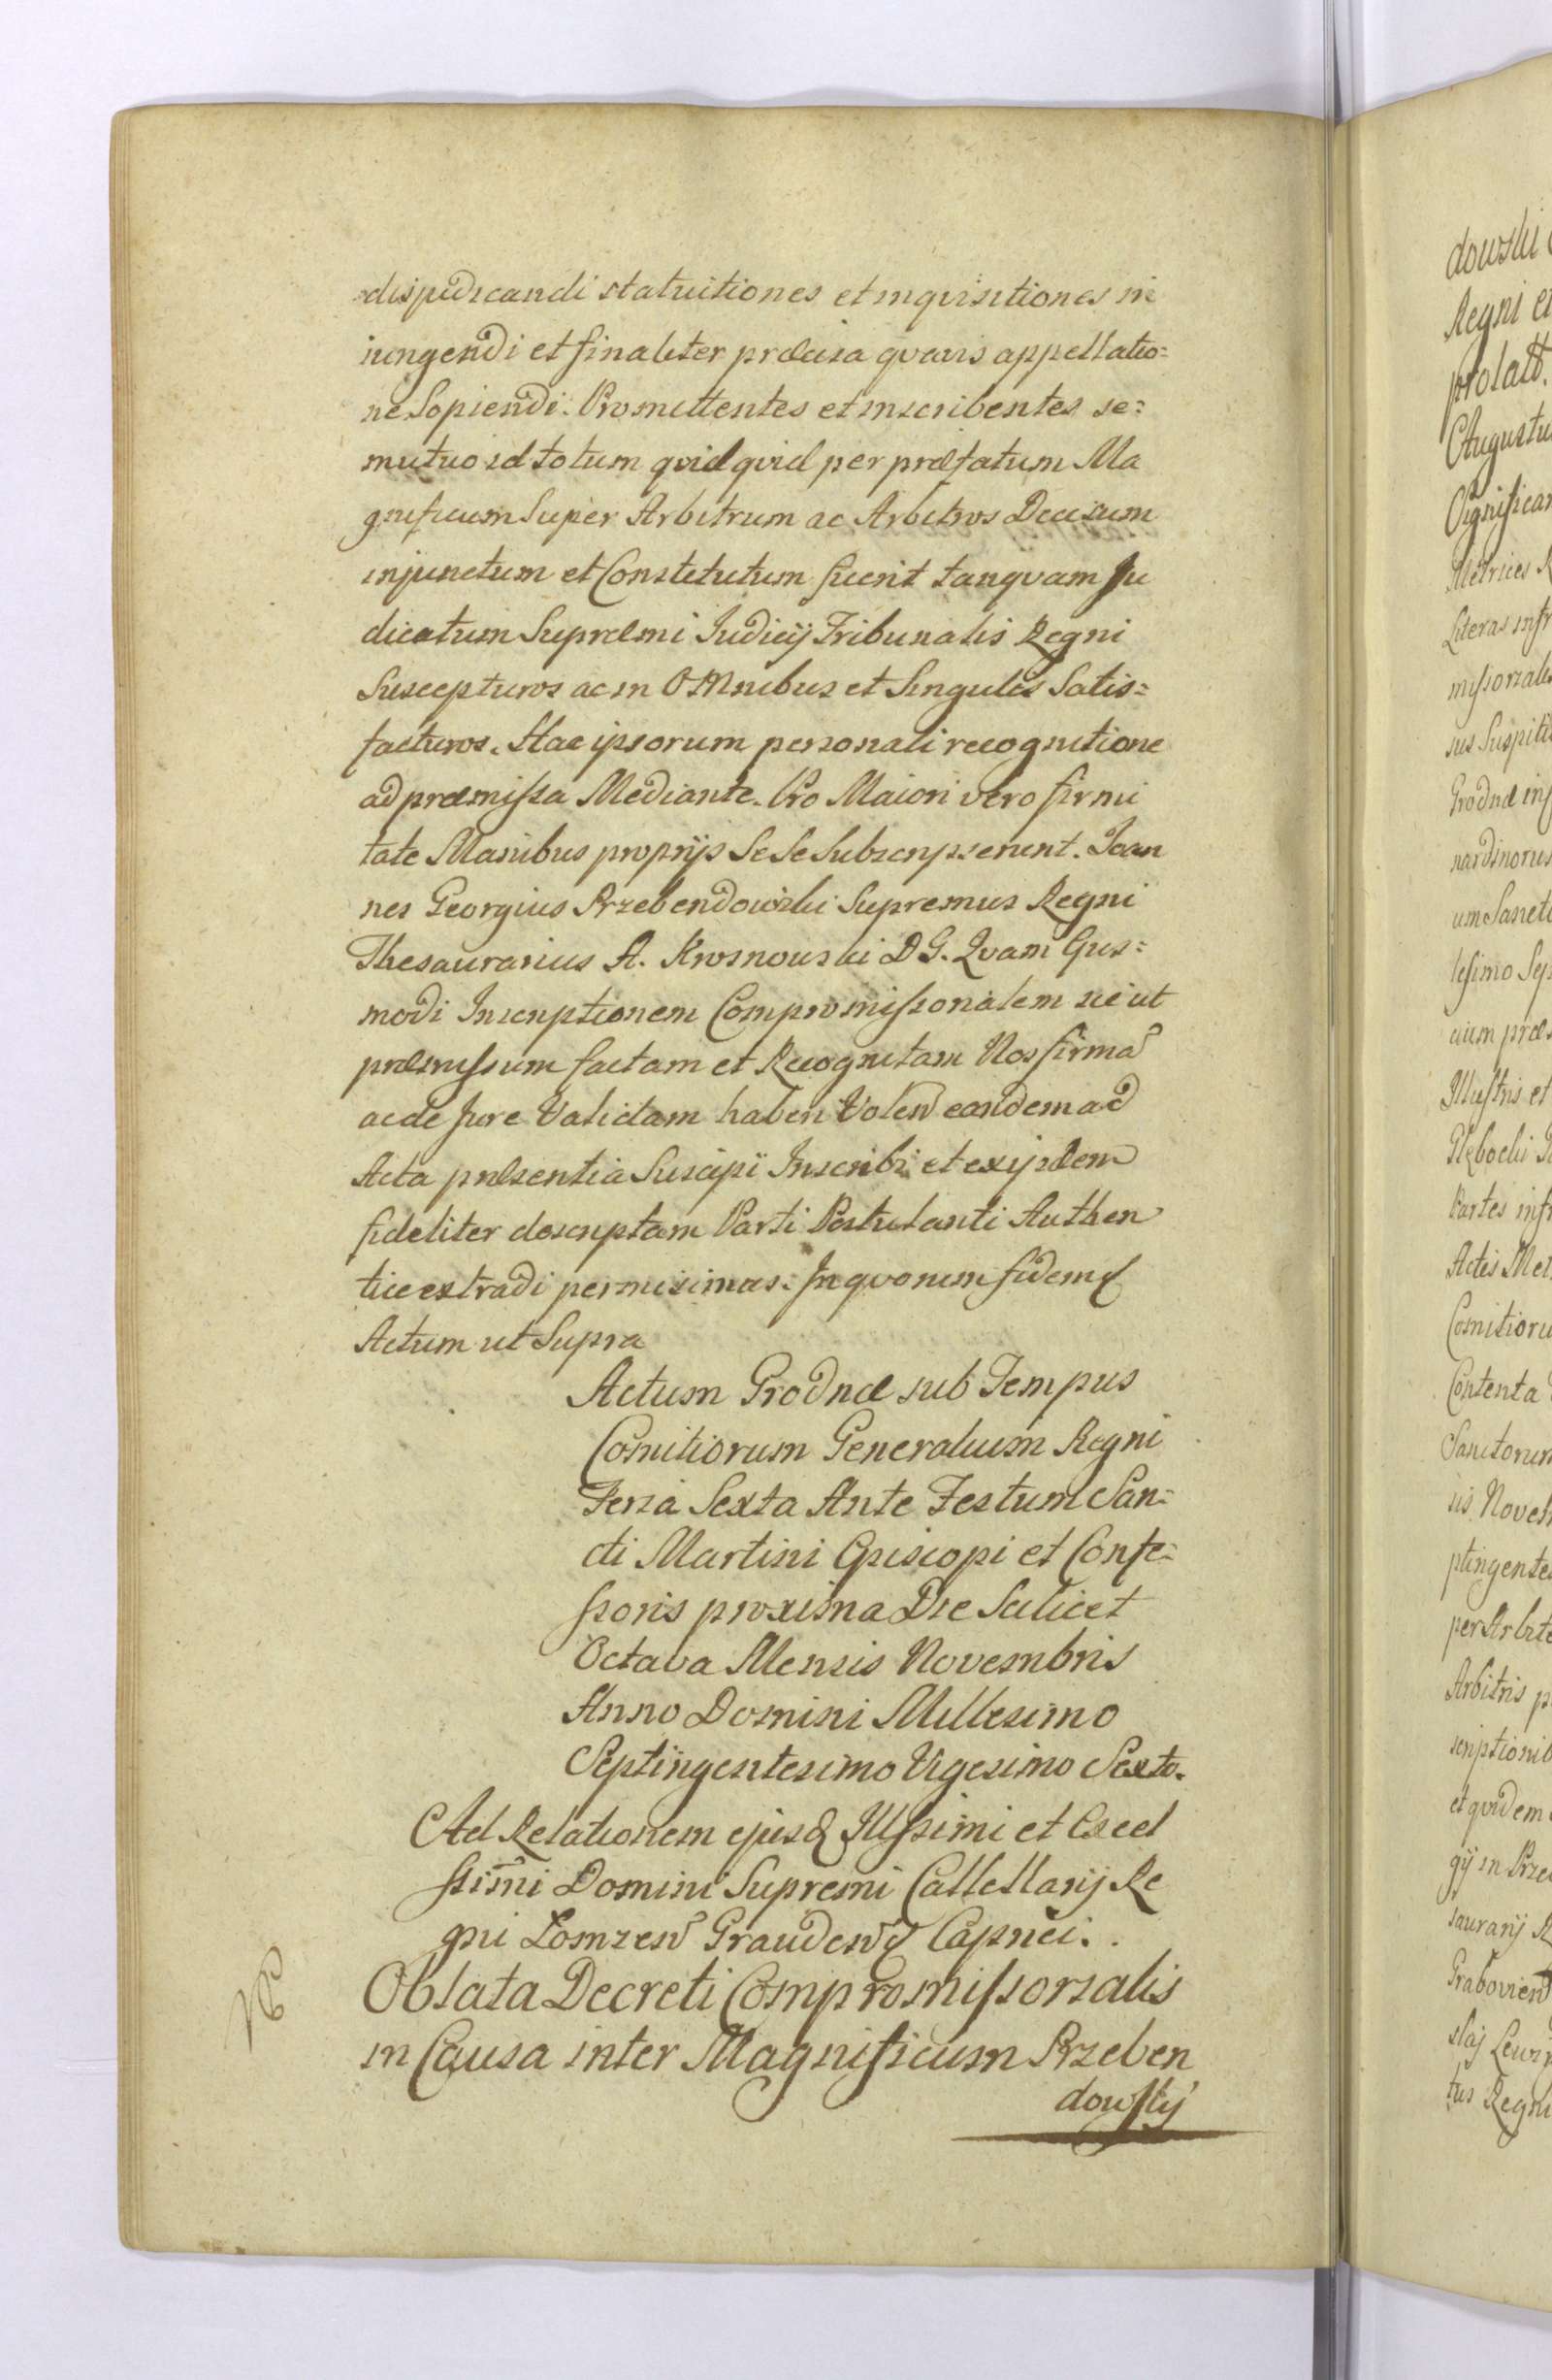 disjudicandi statuitiones et inqvisitiones in
iungendi et finaliter præcisa qvavis appellatio=
ne Sopiendi. Promittentes et inscribentes se=
mutuo id totum qvidqvid per præfatum Ma
gnificum Super Arbitrum ac Arbitros Decisum
injunctum et Constitutum fuerit tanqvam Ju
dicatum Supræmi Iudicij Tribunalis Regni
Suscepturos ac in OMnibus et Singulis Satis=
facturos. Hac ipsorum personali recognitione
ad præmissa Mediante. Pro Maiori vero firmi
tate Manibus proprijs Se Se Subscripserunt. Joan
nes Georgius Przebendowski Supremus Regni
Thesaurarius A. Krosnowski D G. Qvam Gus=
modi Inscriptionem Compromissorialem sic ut
præmissum factam et Recognitam Nos firmã
ac de Jure Validam haberi Volen eandem ad
Acta præsentia Suscipi Inscribi et ex ijsdem
fideliter descriptam Parti Postulanti Authen
tice extradi permisimus. In qvorum fidem
Actum ut Supra
Actum Grodnæ sub Tempus
Comitiorum Generalium Regni
Feria Sexta Ante Festum San=
cti Martini Episcopi et Confe=
ssoris proxima Die Scilicet
Octava Mensis Novembris
Anno Domini Millesimo
Septingentesimo Vigesimo Sexto.
Ad Relationem ejusd Illssimi et Excel
ssimi Domini Supremi Callellarij Re
gni Lomzen Grauden Capnei.
Oblata Decreti Compromissorialis
in Causa inter Magnificum Przeben
dowskij
dowski
Regni et
prolatt.
Augustu
Significa
Metrices R
Literas infr
missoriali
sus Suspiti
Grodnæ ins
nardinorus
um Sancti
lesimo Sep
cium præs
Illustris et
Partes infr
Actis Met
Comitioru
Contenta
Sanctorum
sis Novem
ptingentes
per Arbite
Arbitris p
scriptionib
et qvidem
gij in Prze
saurarij R
Grabovien
tus Regni